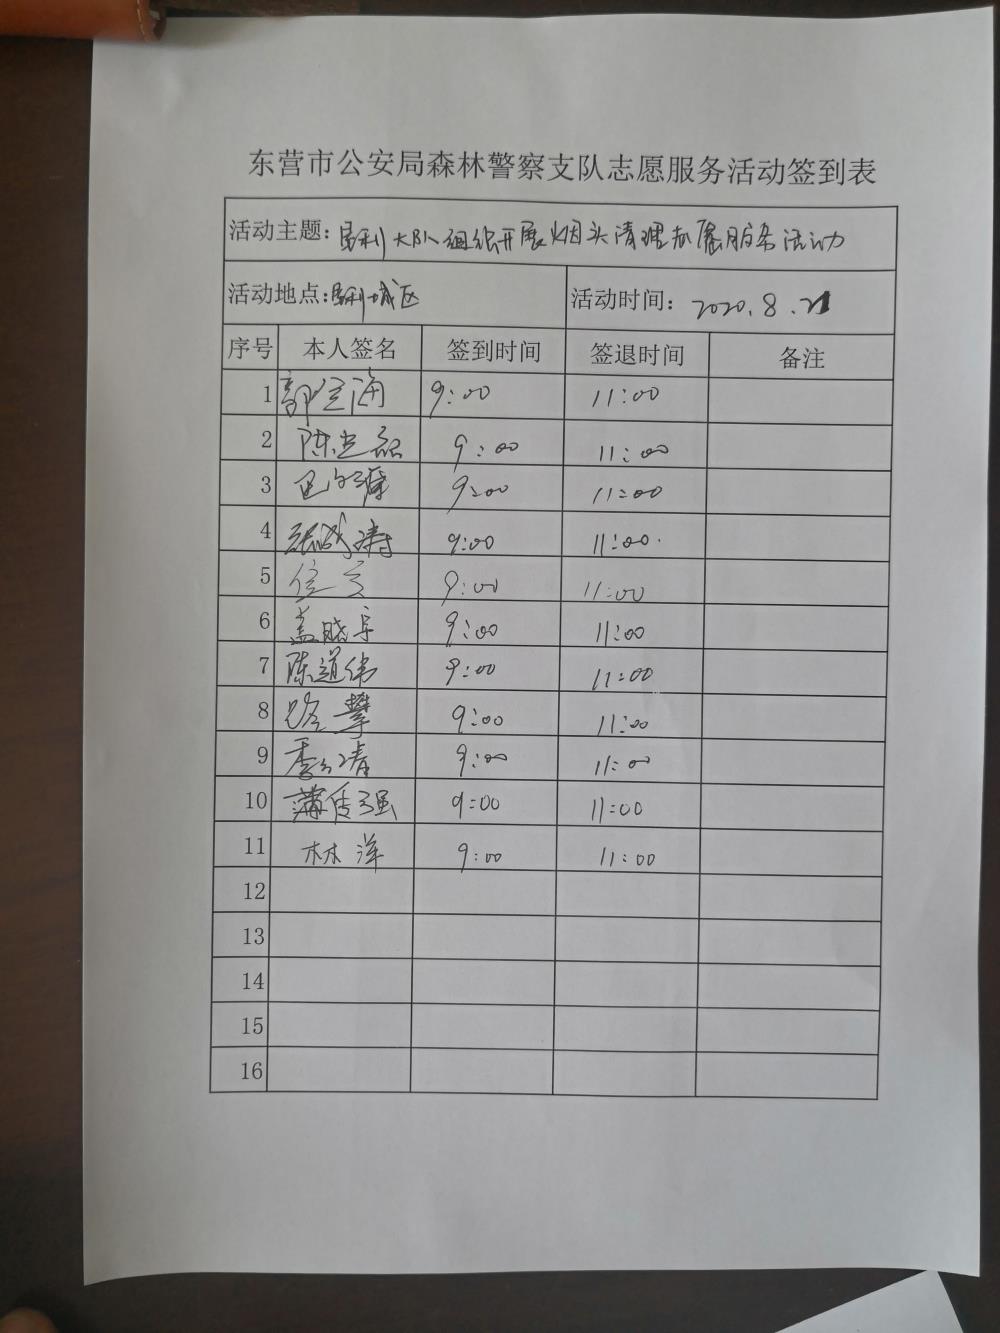 东营市公安局森林警察支队志愿服务活动签到表
活动主题：垦利大队组织开展烟头清理志愿服务活动
活动地点：垦利城区 活动时间：2020.8.21
序号 本人签名 签到时间 签退时间 备注
1 郭全海 9:00 11:00
2 陈立磊 9:00 11:00
3 9:00 11:00
4 张成涛 9:00 11:00
5 9:00 11:00
6 盖晓宇 9:00 11:00
7 陈道伟 9:00 11:00
8 路攀 9:00 11:00
9 9:00 11:00
10 蒲佳强 9:00 11:00
11 林洋 9:00 11:00
12
13
14
15
16